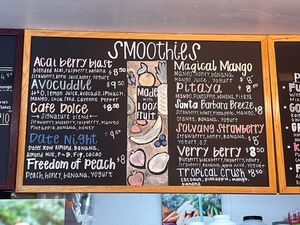 SMOOTHIES
Acai berry blast $8.50
blended acai, raspberry, banana,
strawberry, apple juice, yogurt
Avocuddle $9.50
H2O, lemon juice, avocado, spinach,
mango, chia seed, cayenne pepper
Café Dolce $8
→ SIGNATURE blend ←
STRAWBERRY, raspberry, mango,
Pineapple, banana, yogurt
Date Night $9
Dates, raw almond, banana,
almond milk, cacao
Freedom of Peach $8
Peach, honey, banana, yogurt
Made
with
real
fruit
Magical Mango $8
Mango, honey, banana,
yogurt
Pitaya
mango, pineapple, pitaya,
Santa Barbara Breeze
Strawberry, pineapple, mango,
orange, banana, yogurt
Solvang Strawberry
Strawberry, banana,
yogurt, O.J.
Verry berry $8.50
blueberry, blackberry, raspberry,
strawberry, honey, banana, yogurt
Tropical Crush
coconut, pineapple, mango,
banana